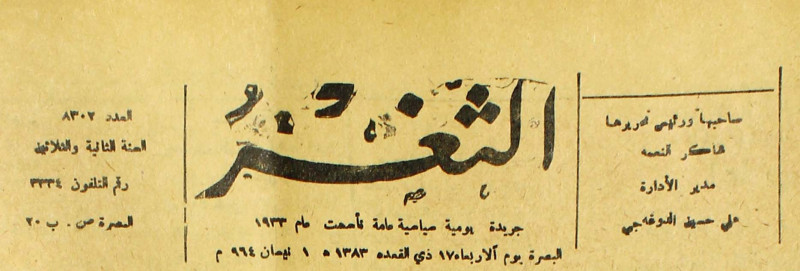 صاحبها ورئيس تحريرها
شاكر النعمه
مدير الأدارة
علي حسين
الثغر
جريدة يومية سياسية عامة تأسست عام ١٩٣٣
البصرة يوم الاربعاء ١٧ ذي القعده ١٣٨٣ ه ١ نيسان ٩٦٤ م
العدد ٨٣٠٢
السنة الثانية والثلاثين
رقم التلفون ٣٣٣٤
البصرة ص . ب ٢٠